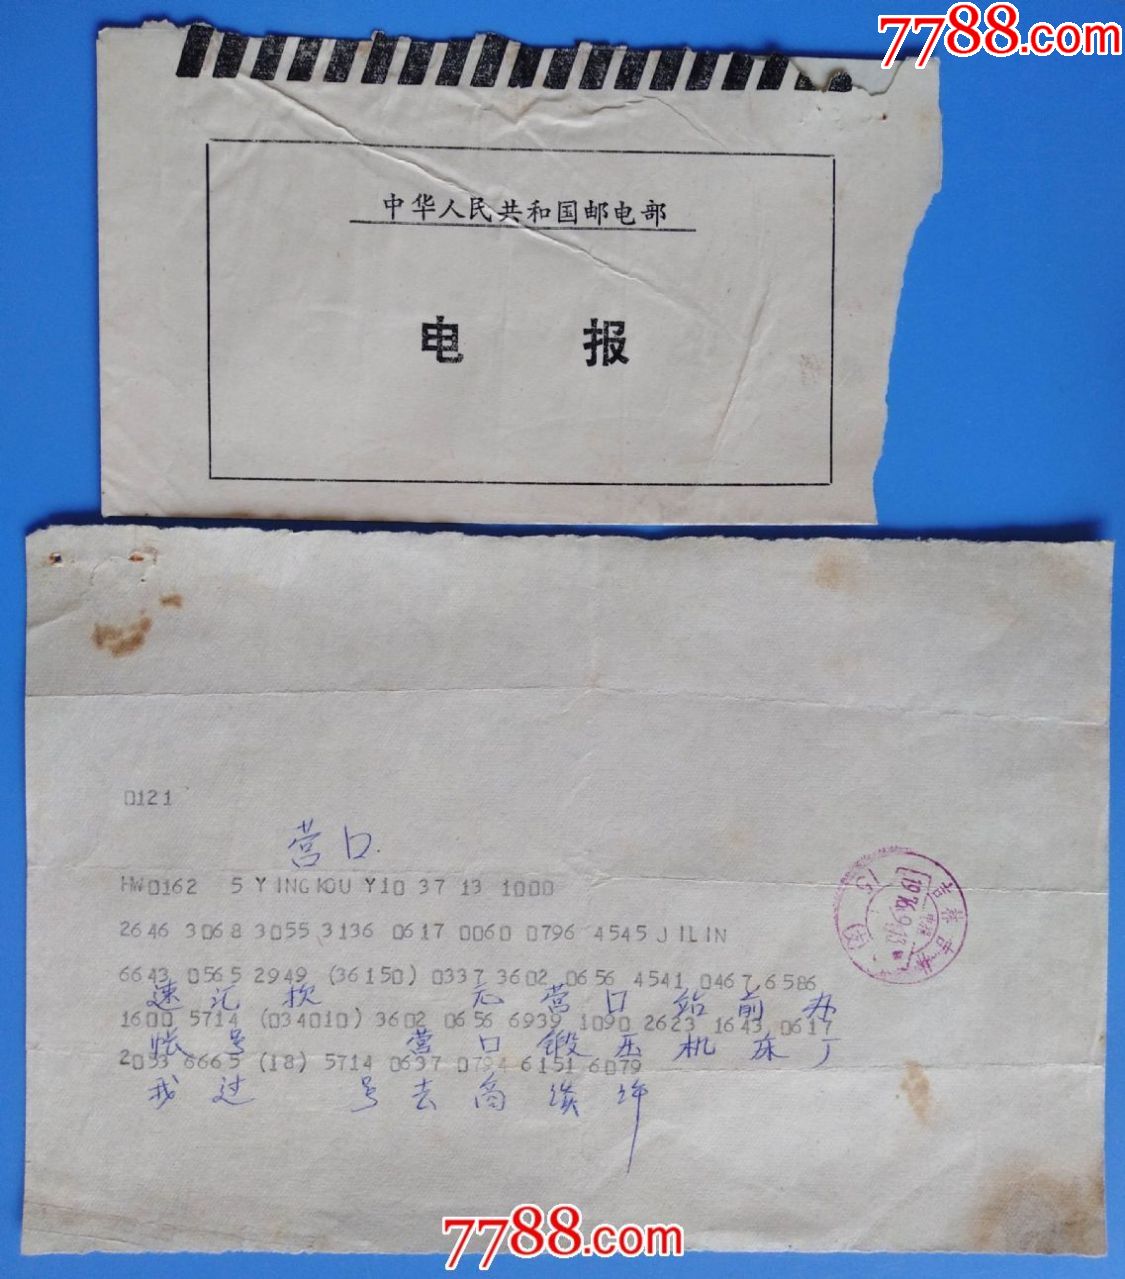 7788.com
中华人民共和国邮电部
电 报
0121
营口
HW0162 5 YINGKOU Y10 37 13 1000
2646 3068 3055 3136 0617 0060 0796 4545 JILIN
6643 0565 2949 (36150) 0337 3602 0656 4541 0467 6586
速汇款 元 营口站前办
1600 5714 (034010) 3602 0656 6939 1090 2623 1643 0617
帐号 营口锻压机床厂
2053 6665 (18) 5714 0637 0794 6151 6079
我过 号去 商谈详
吉林吉林
1976.9.13
15
7788.com